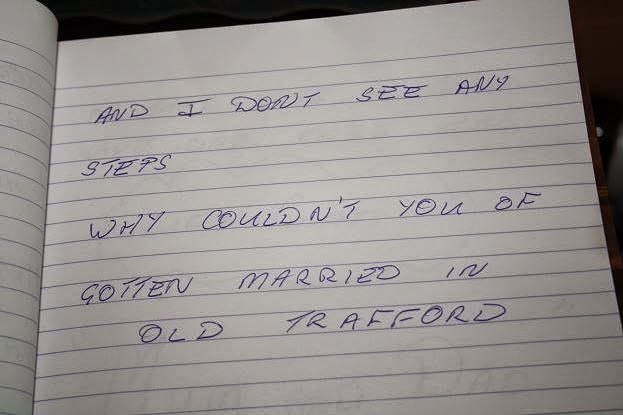 AND I DONT SEE ANY
STEPS
WHY COULDN'T YOU OF
GOTTEN MARRIED IN
OLD TRAFFORD